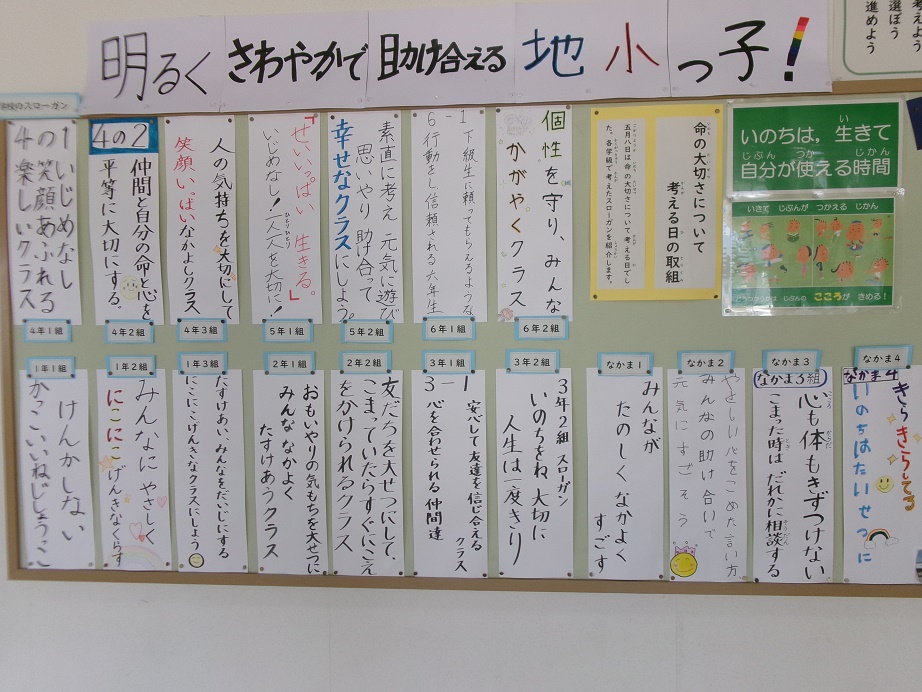 明るくさわやかで助け合える地小っ子!
考えよう
選ぼう
進めよう
学校のスローガン
いのちは、生きて
自分が使える時間
いきて じぶんが つかえる じかん
じぶんの こころが きめる!
命の大切さについて
考える日の取組
五月八日は命の大切さについて考える日でし
た。各学級で考えたスローガンを紹介します。
個性を守り、みんな
かがやくクラス
6年2組
6-1 下級生に頼ってもらえるような
行動をし信頼される六年生
6年1組
素直に考え 元気に遊び
思いやり 助け合って
幸せなクラスにしよう。
5年2組
「せいいっぱい 生きる。」
いじめなし!一人一人を大切に!
5年1組
人の気持ちを大切にして
笑顔いっぱいなかよしクラス
4年3組
4の2
仲間と自分の命と心を
平等に大切にする。
4年2組
4の1 いじめなし
笑顔あふれる
楽しいクラス
4年1組
なかま4
なかま4
きらきらしてる
いのちはたいせつに
なかま3
なかま3組
心も体もきずつけない
こまった時は だれかに相談する
なかま2
やさしい心をこめた言い方、
みんなの助け合いで
元気にすごそう
なかま1
みんなが
たのしく なかよく
すごす
3年2組
3年2組 スローガン
いのちをね 大切に
人生は一度きり
3年1組
3-1 安心して友達を信じ合える
クラス
心を合わせられる仲間達
2年2組
友だちを大せつにして、
こまっていたらすぐにこえ
をかけられるクラス
2年1組
おもいやりの気もちを大せつに
みんな なかよく
たすけあうクラス
1年3組
たすけあい、みんなをだいじにする
にこにこげんきなクラスにしよう
1年2組
みんなに やさしく
にこにこ げんきなくらす
1年1組
けんかしない
かっこいいねじょうっこ